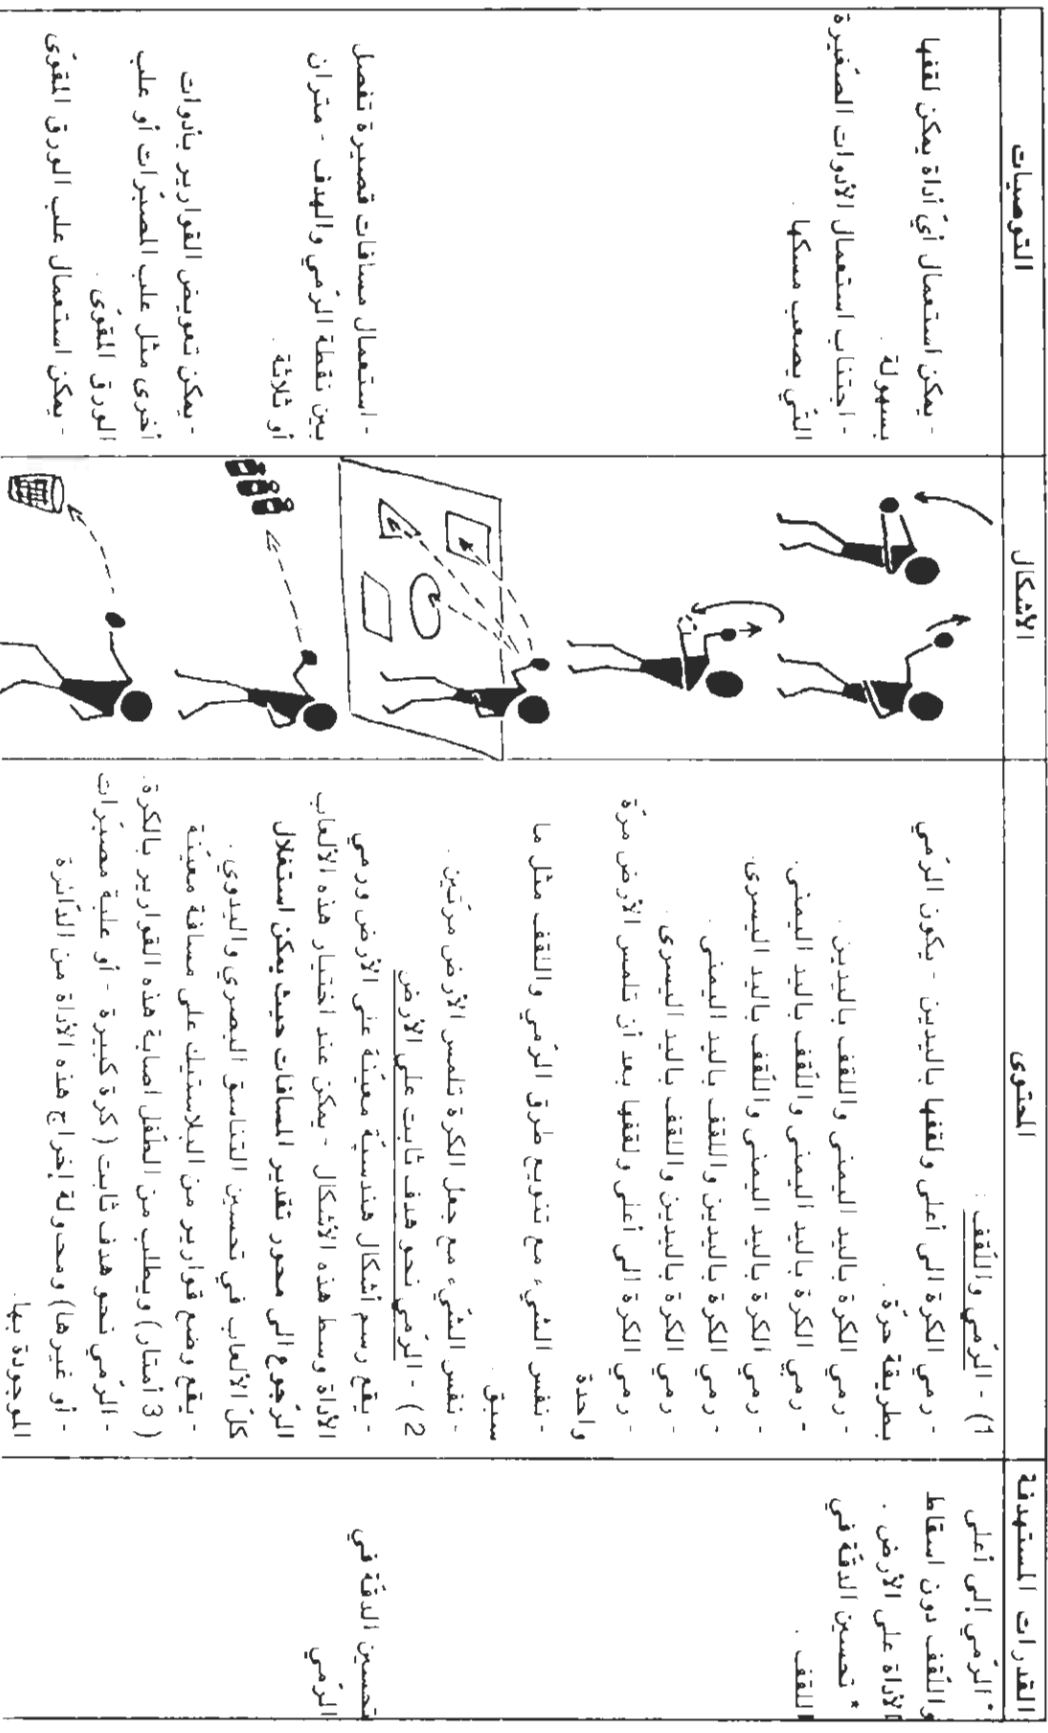 القدرات المستهدفة
المحتوى
الأشكال
التوصيات
* الرّمي إلى أعلى
واللّقف دون اسقاط
الأداة على الأرض .
* تحسين الدقّة في
اللقف .
تحسين الدقّة في
الرّمي
1) - الرّمي واللّقف :
- رمي الكرة الى أعلى ولقفها باليدين - يكون الرّمي
بطريقة حرّة .
- رمي الكرة باليد اليمنى واللقف باليدين .
- رمي الكرة باليد اليمنى واللّقف باليد اليمنى.
- رمي الكرة باليد اليمنى واللّقف باليد اليسرى.
- رمي الكرة باليدين واللقف باليد اليمنى .
- رمي الكرة باليدين واللقف باليد اليسرى .
- رمي الكرة الى أعلى ولقفها بعد أن تلمس الأرض مرّة
واحدة
- نفس الشيء مع تنويع طرق الرّمي واللقف مثل ما
سبق .
- نفس الشّيء مع جعل الكرة تلمس الأرض مرّتين .
2) - الرّمي نحو هدف ثابت على الأرض
- يقع رسم أشكال هندسيّة معيّنة على الأرض ورمي
الأداة وسط هذه الأشكال - يمكن عند اختيار هذه الألعاب
الرّجوع الى محور تقدير المسافات حيث يمكن استغلال
كلّ الألعاب في تحسين التناسق البصري واليدوي .
- يقع وضع قوارير من البلاستيك على مسافة معيّنة
( 3 أمتار) ويطلب من الطّفل اصابة هذه القوارير بالكرة.
- الرّمي نحو هدف ثابت ( كرة كبيرة - أو علبة مصبّرات
- أو غيرها) ومحاولة إخراج هذه الأداة من الدّائرة
الموجودة بها.
- يمكن استعمال أيّ أداة يمكن لقفها
بسهولة .
- اجتناب استعمال الأدوات الصّغيرة
التّي يصعب مسكها .
- استعمال مسافات قصيرة تفصل
بين نقطة الرّمي والهدف - متران
أو ثلاثة .
- يمكن تعويض القوارير بأدوات
أخرى مثل علب المصبّرات أو علب
الورق المقوّى .
- يمكن استعمال علب الورق المقوّى